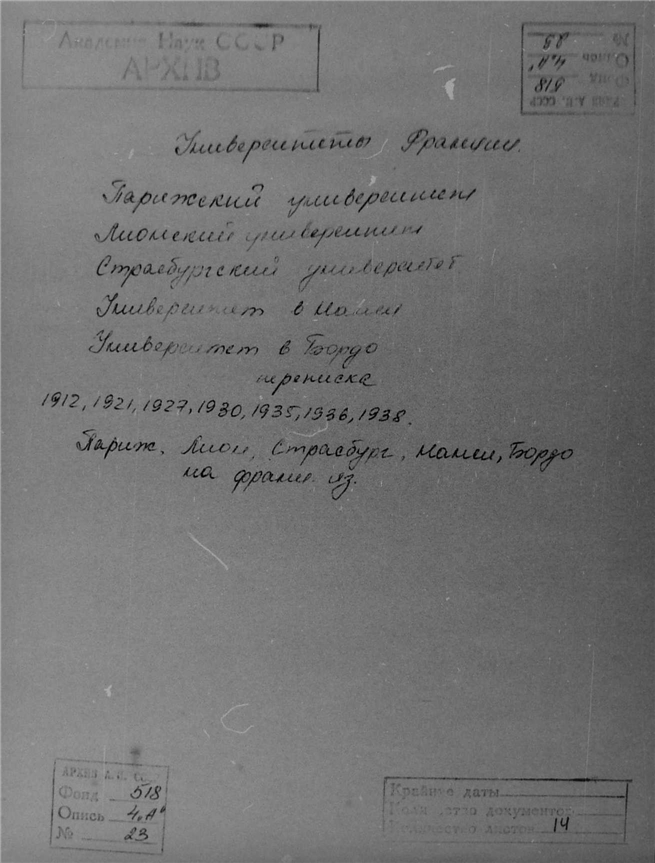 Академия Наук СССР
АРХИВ
Архив А.Н. СССР
Фонд 518
Опись 4„А"
№ 23
Университеты Франции.
Парижский университет
Лионский университет
Страсбургский университет
Университет в Нанси
Университет в Бордо
переписка
1912, 1921, 1927, 1930, 1935, 1936, 1938.
Париж, Лион, Страсбург, Нанси, Бордо
на франц. яз.
АРХИВ А.Н. СС
Фонд 518
Опись 4„А"
№ 23
Крайние даты
Количество документов
Количество листов 14